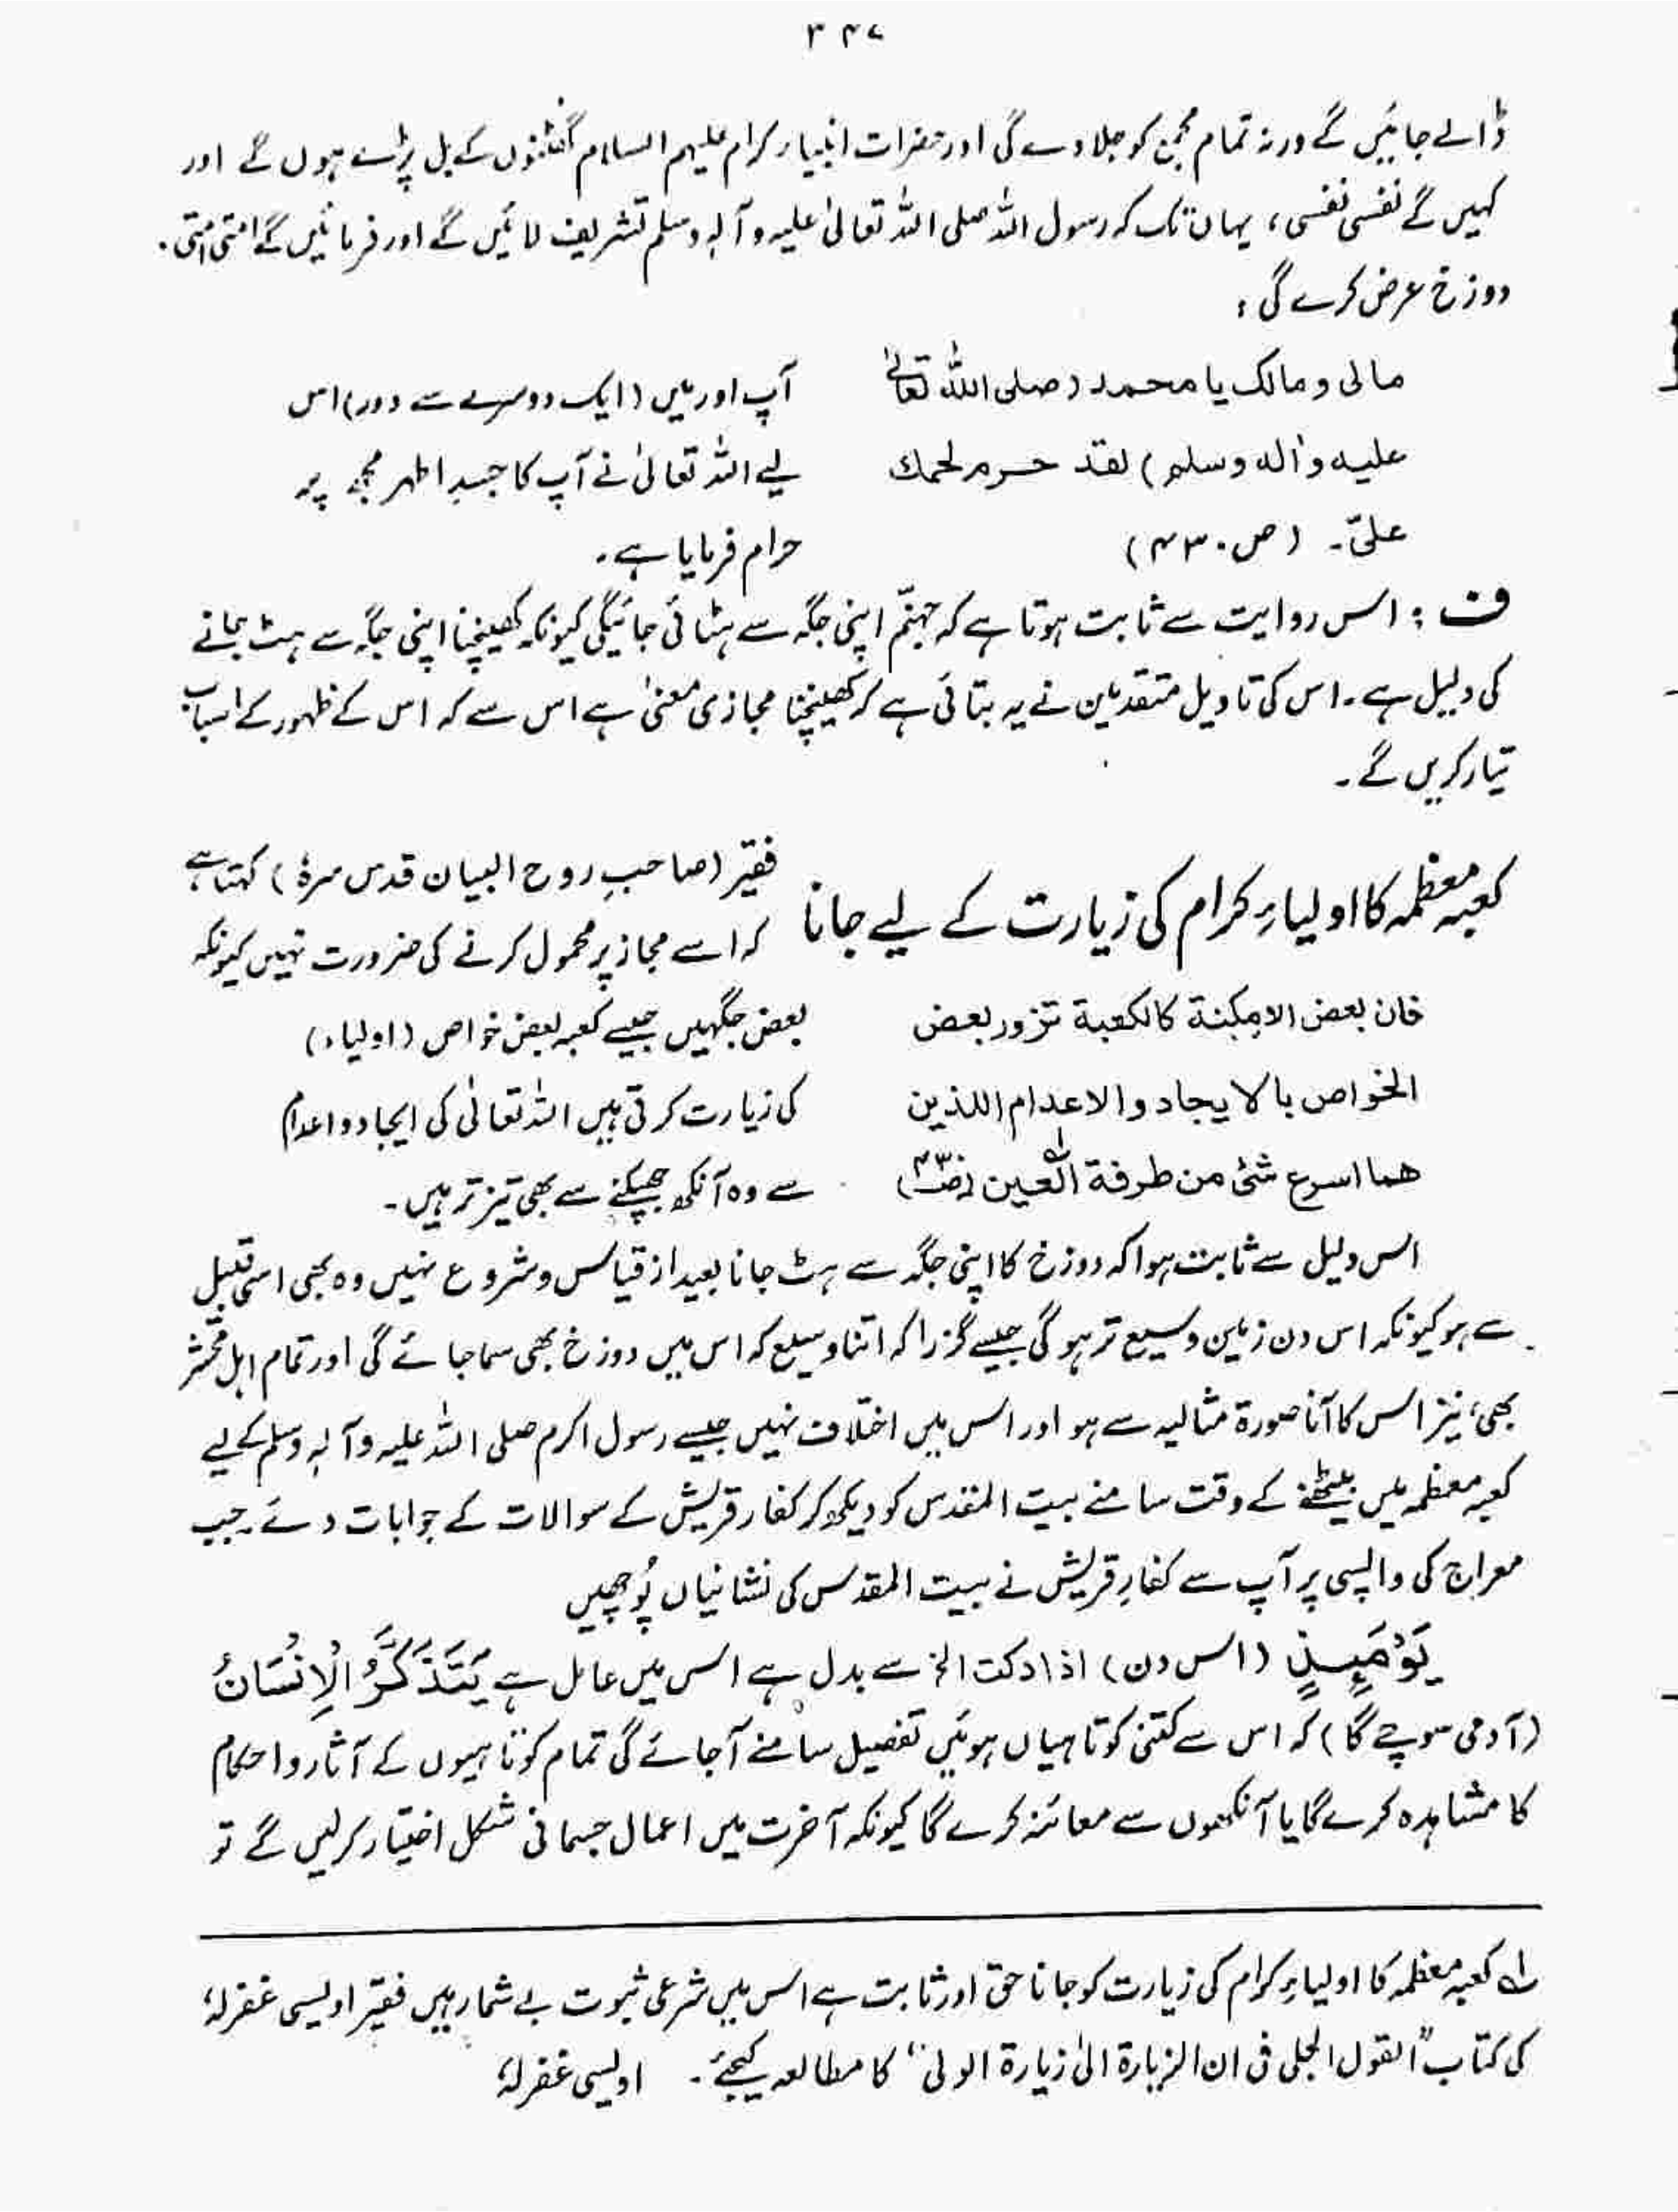 ۳۴۷
ڈالے جائیں گے ورنہ تمام مجمع کو جلا دے گی اور حضرات انبیاء کرام علیہم السلام گھٹنوں کے بل پڑے ہوں گے اور
کہیں گے نفسی نفسی ، یہاں تک کہ رسول اللہ صلی اللہ تعالیٰ علیہ وآلہٖ وسلم تشریف لائیں گے اور فرمائیں گے امتی امتی ۔
دوزخ عرض کرے گی :
مالی ومالک یا محمد (صلی اللہ تعالےٰ
علیہ واٰلہ وسلم) لقد حرم لحمك
علیّ۔ (ص ۴۳۰)
آپ اور میں (ایک دوسرے سے دور) اس
لیے اللہ تعالیٰ نے آپ کا جسدِ اطہر مجھ پر
حرام فرمایا ہے ۔
ف : اس روایت سے ثابت ہوتا ہے کہ جہنّم اپنی جگہ سے ہٹائی جائیگی کیونکہ کھینچنا اپنی جگہ سے ہٹ جانے
کی دلیل ہے ۔ اس کی تاویل متقدمین نے یہ بتائی ہے کہ کھینچنا مجازی معنیٰ ہے اس سے کہ اس کے ظہور کے اسباب
تیار کریں گے ۔
کعبہ معظمہ کا اولیاءِ کرام کی زیارت کے لیے جانا
فقیر (صاحبِ روح البیان قدس سرہٗ) کہتا ہے
کہ اسے مجاز پر محمول کرنے کی ضرورت نہیں کیونکہ
فان بعض الامکنة کالکعبة تزور بعض
الخواص بالایجاد والاعدام اللذین
ھما اسرع شئ من طرفة العین
بعض جگہیں جیسے کعبہ بعض خواص (اولیاء)
کی زیارت کرتی ہیں اللہ تعالیٰ کی ایجاد و اعدام
سے وہ آنکھ جھپکنے سے بھی تیز تر ہیں ۔
اس دلیل سے ثابت ہوا کہ دوزخ کا اپنی جگہ سے ہٹ جانا بعید از قیاس و شروع نہیں وہ بھی اسی قبیل
سے ہو کیونکہ اس دن زمین وسیع تر ہوگی جیسے گزرا کہ اتنا وسیع کہ اس میں دوزخ بھی سما جائے گی اور تمام اہل محشر
بھی ، نیز اس کا آنا صورۃ مثالیہ سے ہو اور اس میں اختلاف نہیں جیسے رسول اکرم صلی اللہ علیہ وآلہٖ وسلم کے لیے
کعبہ معظمہ میں بیٹھنے کے وقت سامنے بیت المقدس کو دیکھ کر کفار قریش کے سوالات کے جوابات دئے ۔ جب
معراج کی واپسی پر آپ سے کفارِ قریش نے بیت المقدس کی نشانیاں پُوچھیں
يَوْمَئِذٍ (اس دن) اذا دکت الخ سے بدل ہے اس میں عامل ہے يَتَذَكَّرُ الْإِنْسَانُ
(آدمی سوچے گا) کہ اس سے کتنی کوتاہیاں ہوئیں تفصیل سامنے آجائے گی تمام کوتاہیوں کے آثار و احکام
کا مشاہدہ کرے گا یا آنکھوں سے معائنہ کرے گا کیونکہ آخرت میں اعمال جسمانی شکل اختیار کرلیں گے تو
لہ کعبہ معظمہ کا اولیاءِ کرام کی زیارت کو جانا حق اور ثابت ہے اس میں شرعی ثبوت بے شمار ہیں فقیر اویسی غفرلہٗ
کی کتاب "القول الجلی فی ان الزیارۃ الیٰ زیارۃ الولی" کا مطالعہ کیجئے ۔ اویسی غفرلہٗ